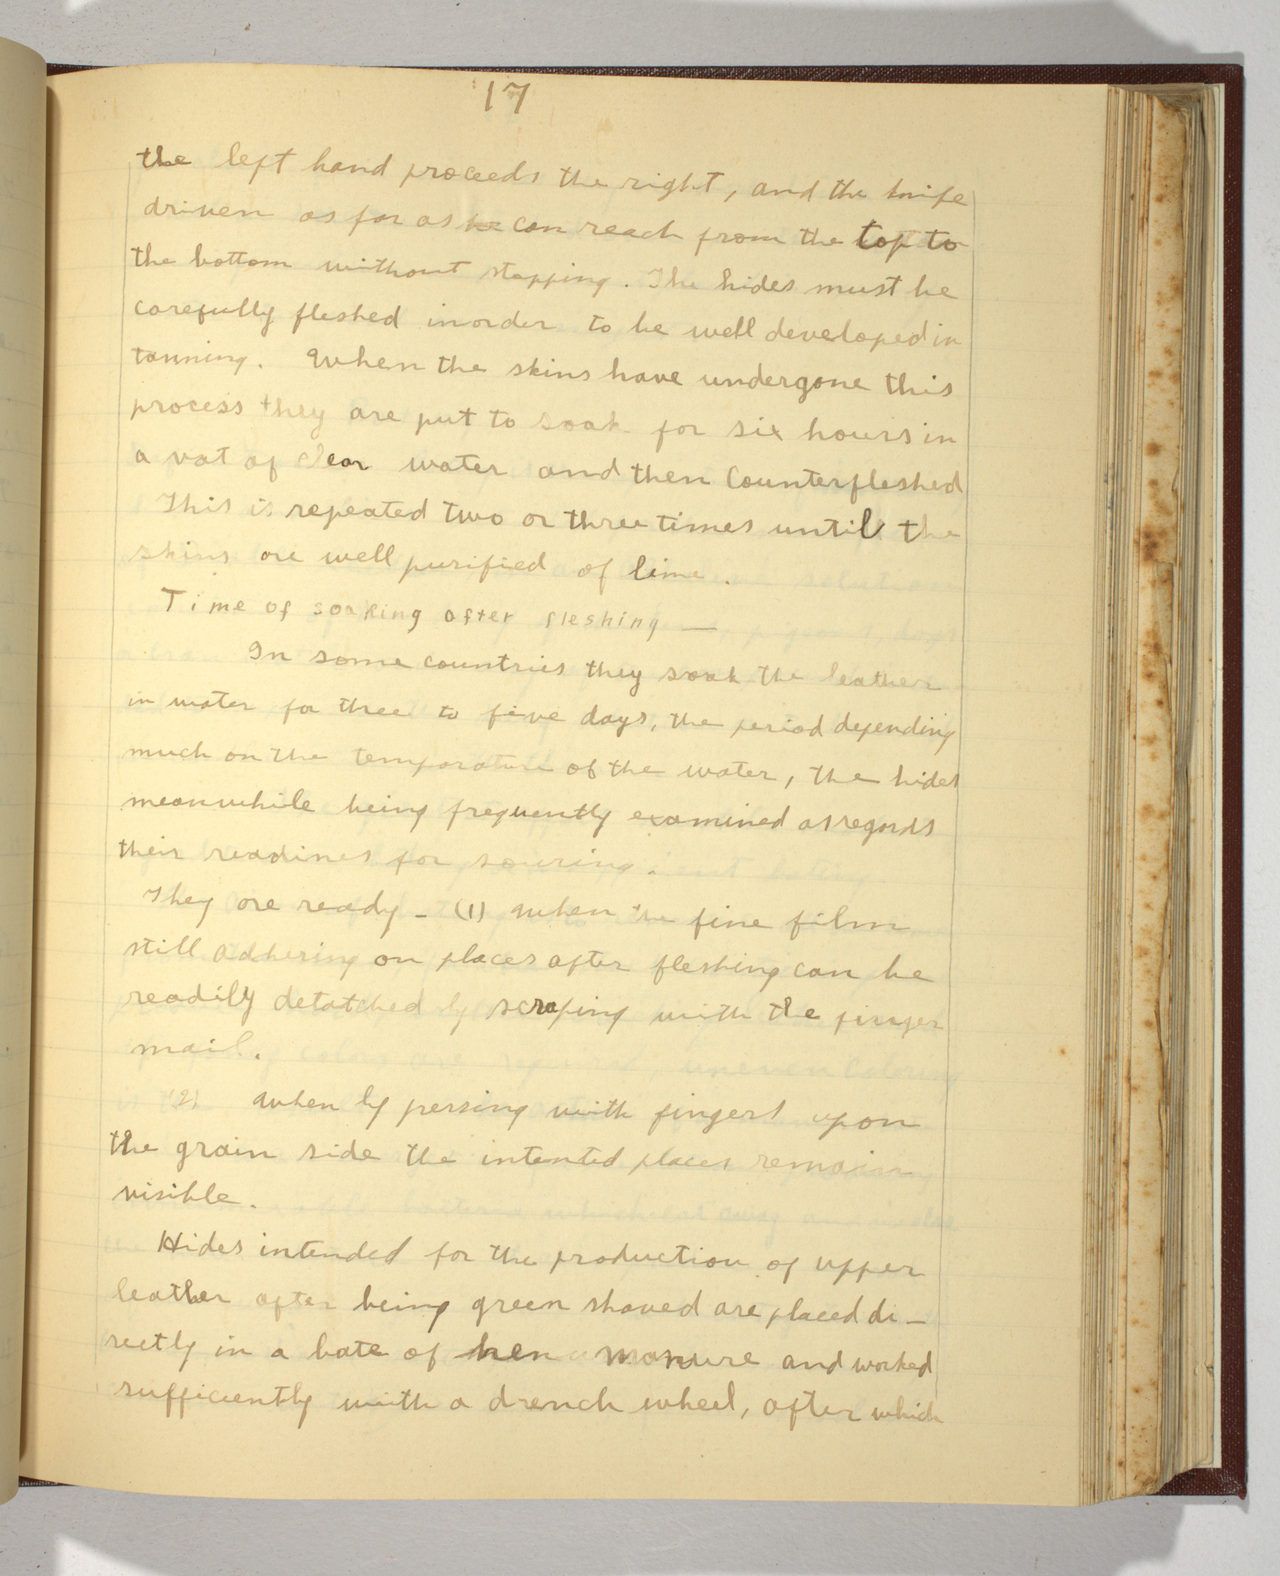 17
the left hand proceeds the right, and the knife
driven as far as he can reach from the top to
the bottom without stopping. The hides must be
carefully fleshed inorder to be well developed in
tanning. When the skins have undergone this
process they are put to soak for six hours in
a vat of clear water and then Counterfleshed
This is repeated two or three times until the
skins are well purified of lime.
Time of soaking after fleshing —
In some countries they soak the leather
in water for three to five days, the period depending
much on the temporature of the water, the hides
meanwhile being frequently examined as regards
their readines for souring.
They are ready - (1) When the fine film
still adhering on places after fleshing can be
readily detatched by scraping with the finger
nail.
(2) When by persing with fingers upon
the grain side the intented places remain
visible.
Hides intended for the production of upper
leather after being green shaved are placed di-
rectly in a bate of hen manure and worked
sufficiently with a drench wheel, after which